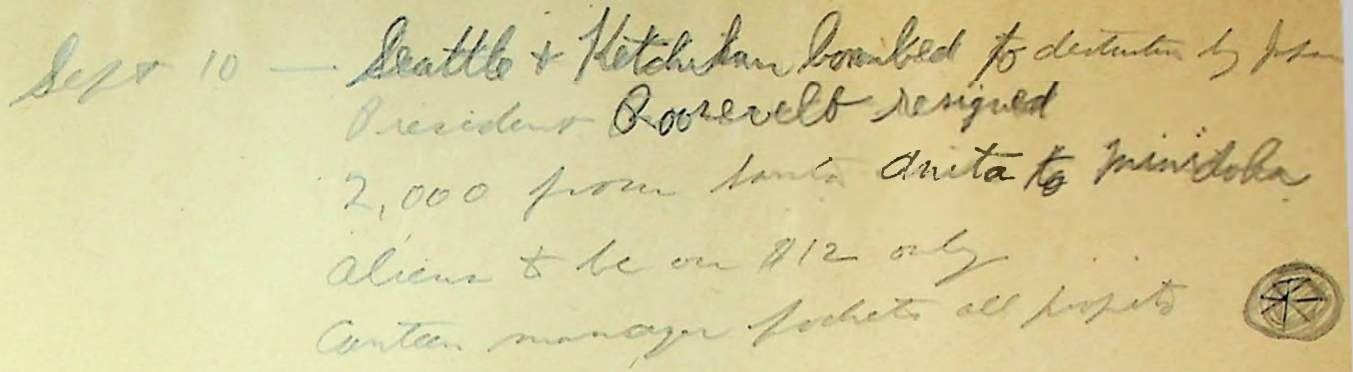 Sept 10 — Seattle & Ketchikan bombed to destruction by Japan
President Roosevelt resigned
2,000 from Santa Anita to Minidoka
Aliens to be on $12 only
Canteen manager pockets all profits